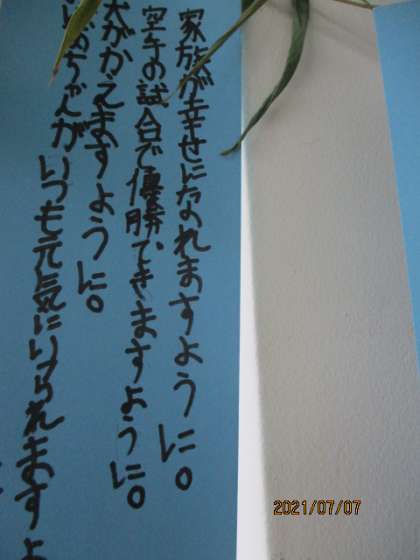 家族が幸せになれますように。
空手の試合で優勝できますように。
犬がかえますように。
ばあちゃんがいつも元気にいられますよ
2021/07/07